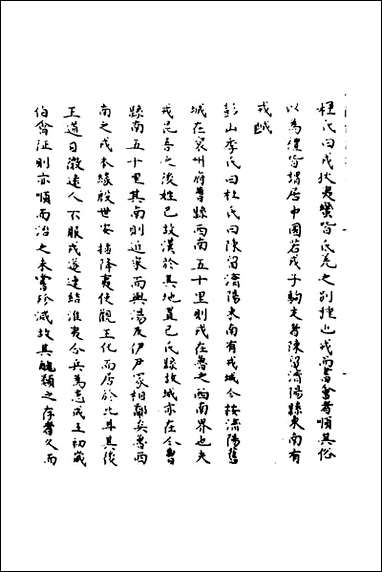 杜氏曰戎狄夷蠻皆氐羌之别種也戎而書會者順其俗
以為禮皆謂居中國若戎子駒支者陳留濟陽縣東南有
戎城
彭山季氏曰杜氏曰陳留濟陽東南有戎城今按濟陽舊
城在兗州府曹縣西南五十里則戎在魯之西南界也夫
戎昆吾之後姓己故漢於其地置己氏縣故城亦在今曹
縣南五十里其南則近宋而與湯及伊尹冢相鄰矣魯西
南之戎本緣殷世安揷降夷使觀王化而居於此耳其後
王道日微遠人不服戎遂連結淮夷合兵為患成王初歲
伯禽征則亦順而治之未嘗殄滅故其醜類之存者久而